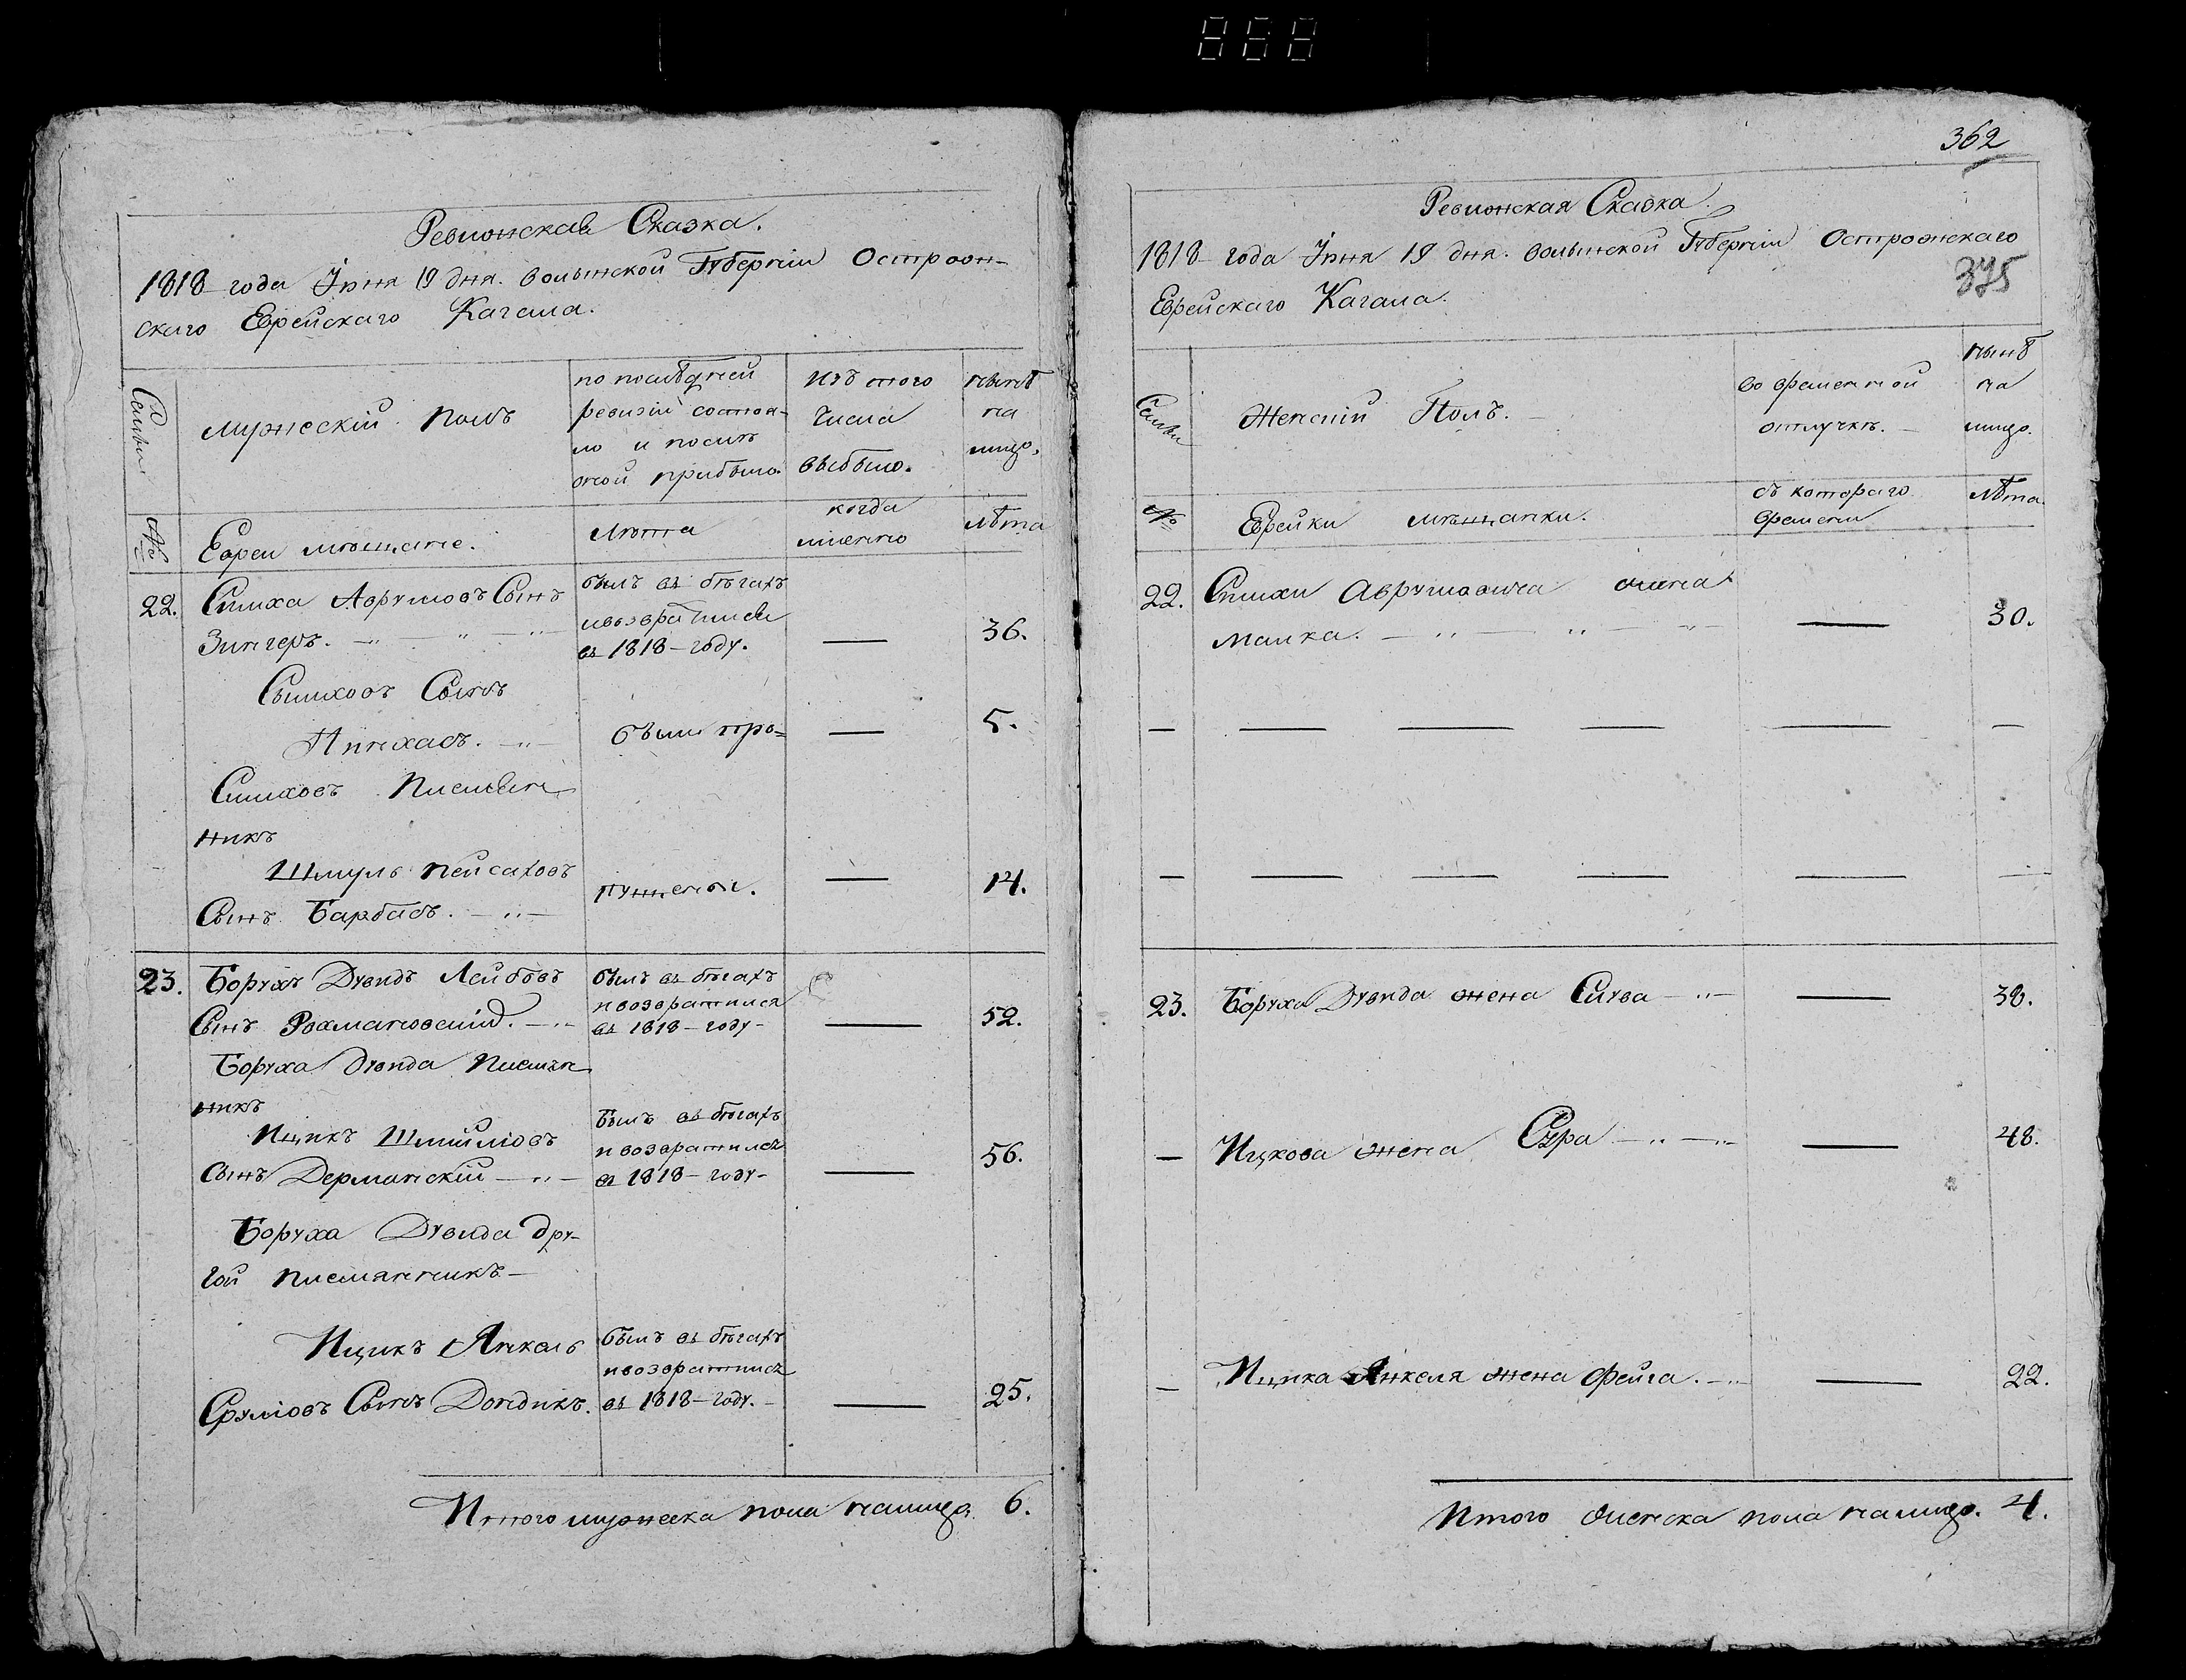 Ревизская Сказка.
1818 года Іюня 19 дня. Волынской Губерніи Острож-
скаго Еврейскаго Кагала.
Семьи
мужескій полъ
по послѣдней
ревизіи состоя-
ло и послѣ
оной прибыло.
Изъ того
числа
выбыло.
нынѣ
на
лицо.
№
Евреи мѣщане.
лѣта
когда
именно
лѣта
22.
Симха Аврумовъ Сынъ
Зингеръ.
былъ въ бѣгахъ
и возвратился
въ 1818 году.
36.
Симховъ Сынъ
Пинхасъ.
были про=
5.
Симховъ Племян
никъ
Шмуль Пейсаховъ
Сынъ Барбасъ.
пущены.
14.
23.
Борухъ Дувидъ Лейбовъ
Сынъ Рохмановскій.
былъ въ бѣгахъ
и возвратился
въ 1818 году
52.
Боруха Дувида Племян
никъ
Ицикъ Шмуйловъ
Сынъ Дерманскій
былъ въ бѣгахъ
и возвратился
въ 1818 году
56.
Боруха Дувида дру-
гой племянникъ
Ицикъ Янкель
Сруліовъ Сынъ Дондикъ.
былъ въ бѣгахъ
и возвратился
въ 1818 году.
25.
Итого мужеска пола налицо 6.
362
Ревизская Сказка.
1818 года Іюня 19 дня. Волынской Губерніи Острожскаго
Еврейскаго Кагала.
375
Семьи
Женскій Полъ.
во временной
отлучкѣ.
нынѣ
на
лицо.
№
Еврейки мѣщанки.
съ котораго
времени
лѣта.
22.
Симхи Аврумовича жена
Малка.
30.
23.
Боруха Дувида жена Ситва
38.
Ицкова жена Сура
48.
Ицика Янкеля жена Фейга.
22.
Итого женска пола налицо. 4.